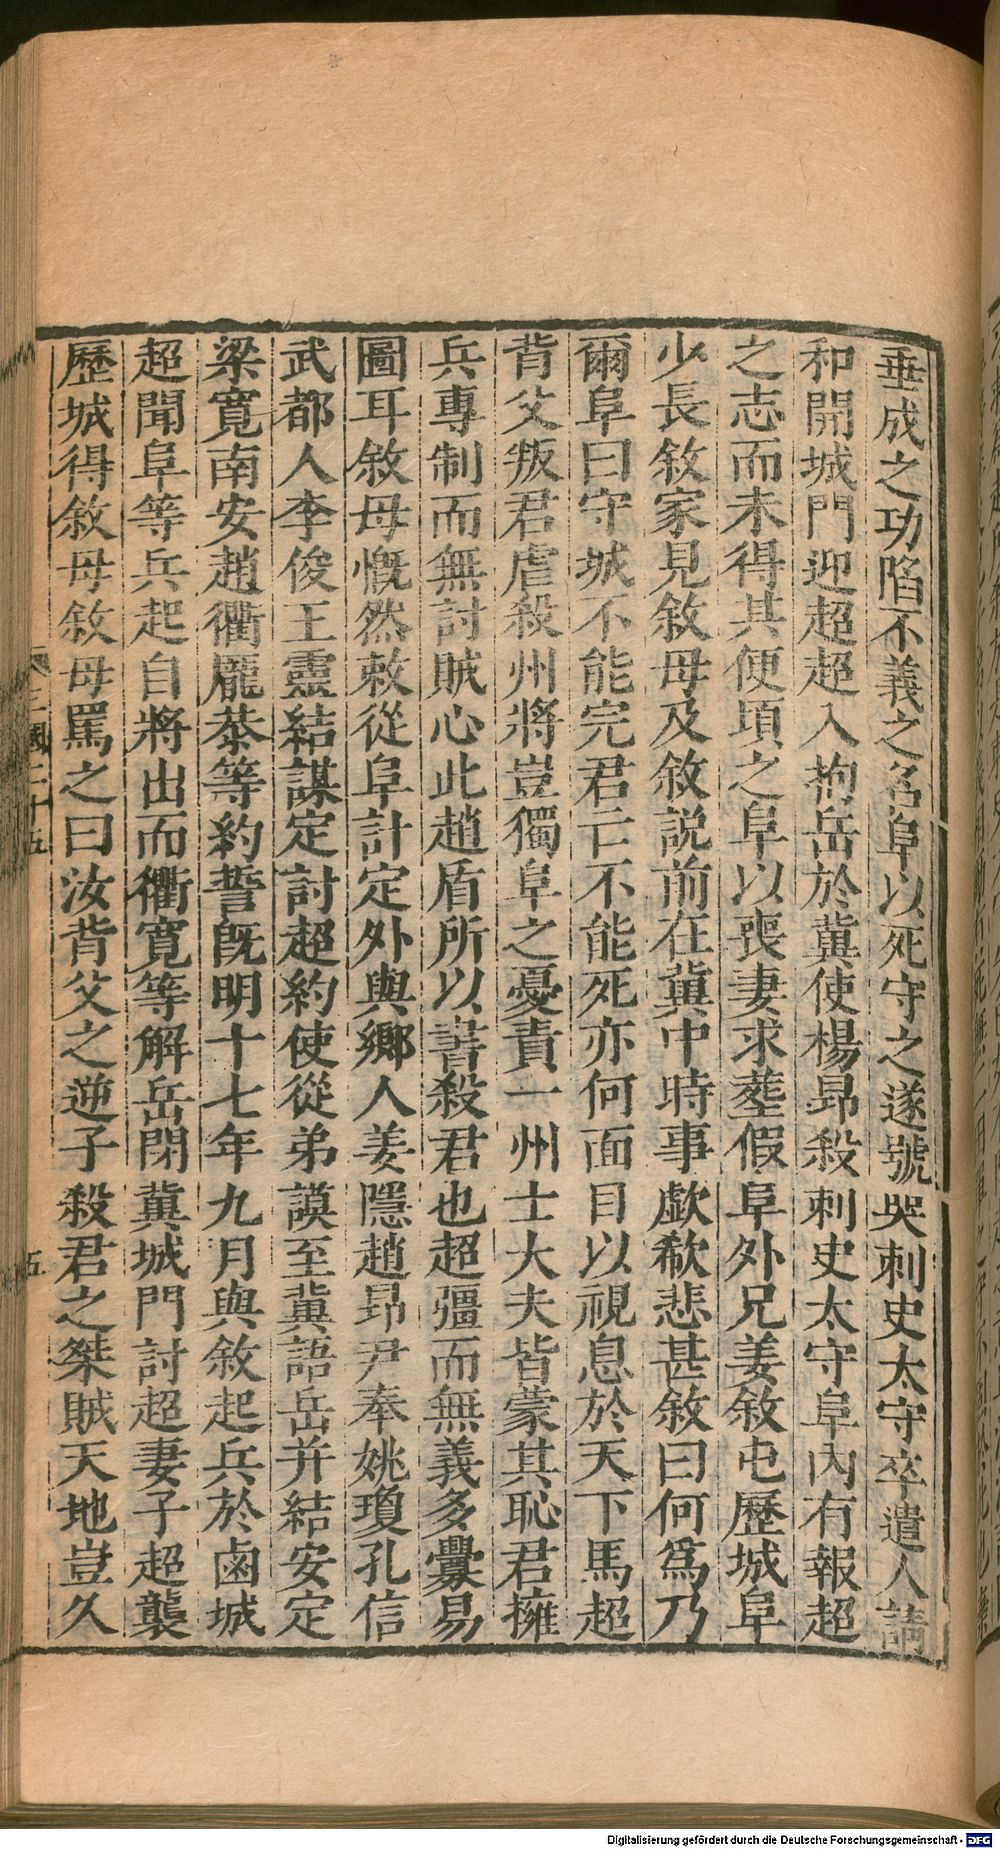 垂成之功陷不義之名阜以死守之遂號哭刺史太守卒遣人請
和開城門迎超超入拘岳於冀使楊昻殺刺史太守阜內有報超
之志而未得其便頃之阜以喪妻求塟假阜外兄姜敘屯歷城阜
少長敘家見敘母及敘說前在冀中時事歔欷悲甚敘曰何爲乃
爾阜曰守城不能完君亡不能死亦何面目以視息於天下馬超
背父叛君虐殺州將豈獨阜之憂責一州士大夫皆蒙其恥君擁
兵專制而無討賊心此趙盾所以書殺君也超彊而無義多釁易
圖耳敘母慨然敕從阜計定外與鄉人姜隱趙昻尹奉姚瓊孔信
武都人李俊王靈結謀定討超約使從弟謨至冀語岳并結安定
梁寛南安趙衢龎恭等約誓旣明十七年九月與敘起兵於鹵城
超聞阜等兵起自將出而衢寛等解岳閉冀城門討超妻子超襲
歷城得敘母敘母罵之曰汝背父之逆子殺君之桀賊天地豈久
三國二十五
五
Digitalisierung gefördert durch die Deutsche Forschungsgemeinschaft - DFG